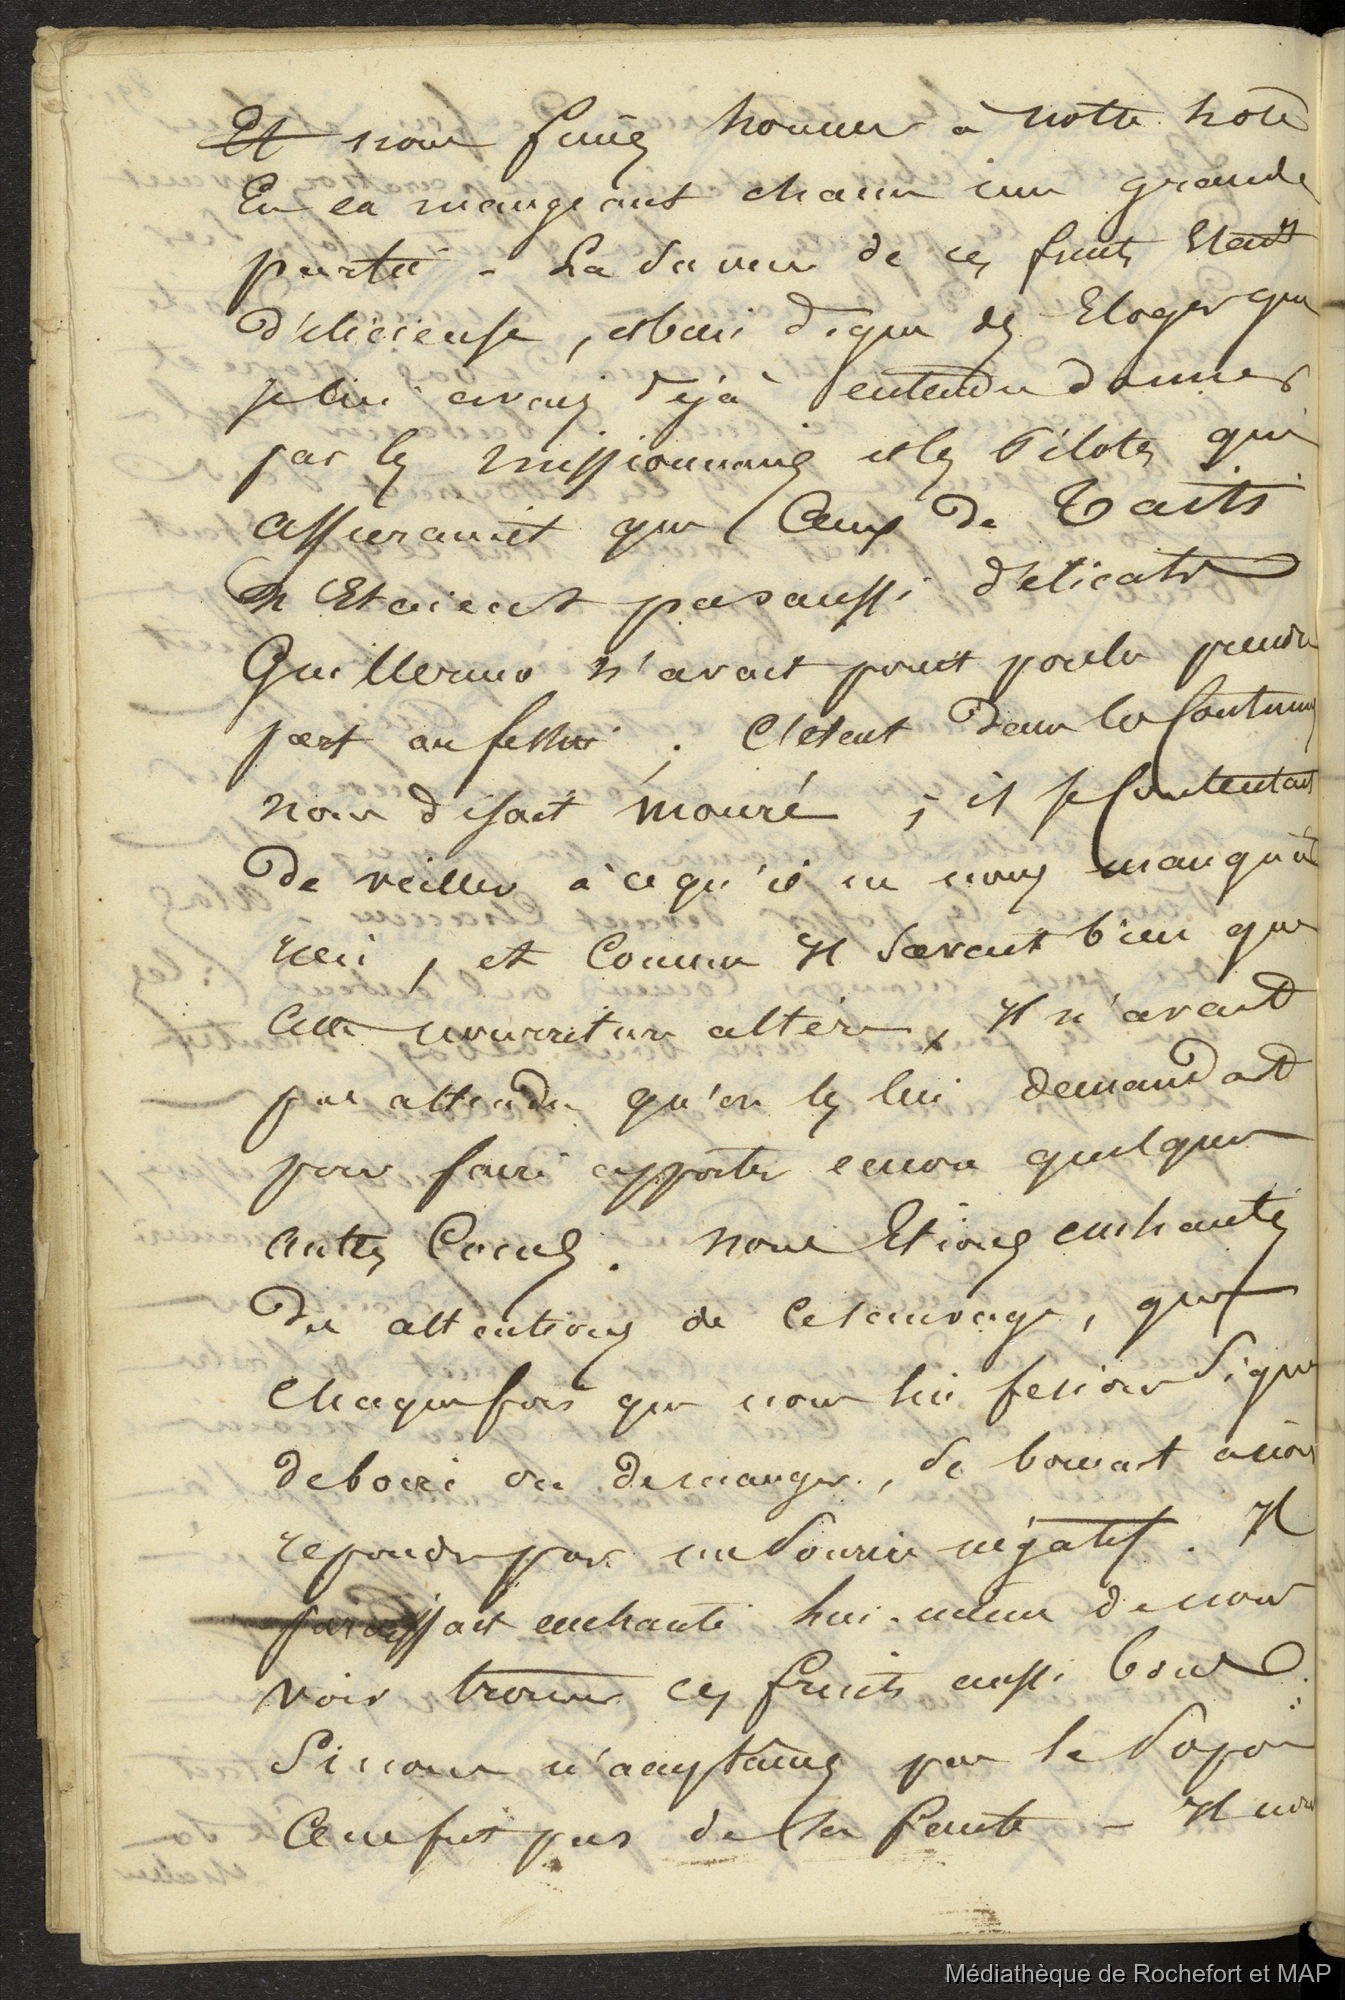 Et nous fumes honneur à notre hôte
En en mangeant chacun une grande
partie - La saveur de ces fruits Etait
d'élicieuse, et bien digne des Eloges que
je lui avais déjà entendu donner
par les missionnaires et les Pilotes qui
assuraient que Ceux de Taiti
n'Etaient pas aussi délicats
Guillermo n'avait point voulu prendre
part au festin. C'était dans les Coutumes
nous disait Mouré, il se Contentait
de veiller à ce qu'il ne nous manquât
rien, et Comme Il savait bien que
Cette nourriture altère, Il n'avait
pas attendu qu'on les lui demandat
pour faire apporter encore quelques
autres Cocos. nous Etions enchantés
des attentions de Ce sauvage, que
Chaque fois que nous lui fesions Signe
de boire ou de manger, se bornait à nous
repondre par un Sourire négatif. Il
paraissait enchanté lui-même de nous
voir trouver ces fruits aussi bons.
Si nous n'acceptâmes pas le Popoi
Ce ne fut pas de sa faute - Il nous
Médiathèque de Rochefort et MAP